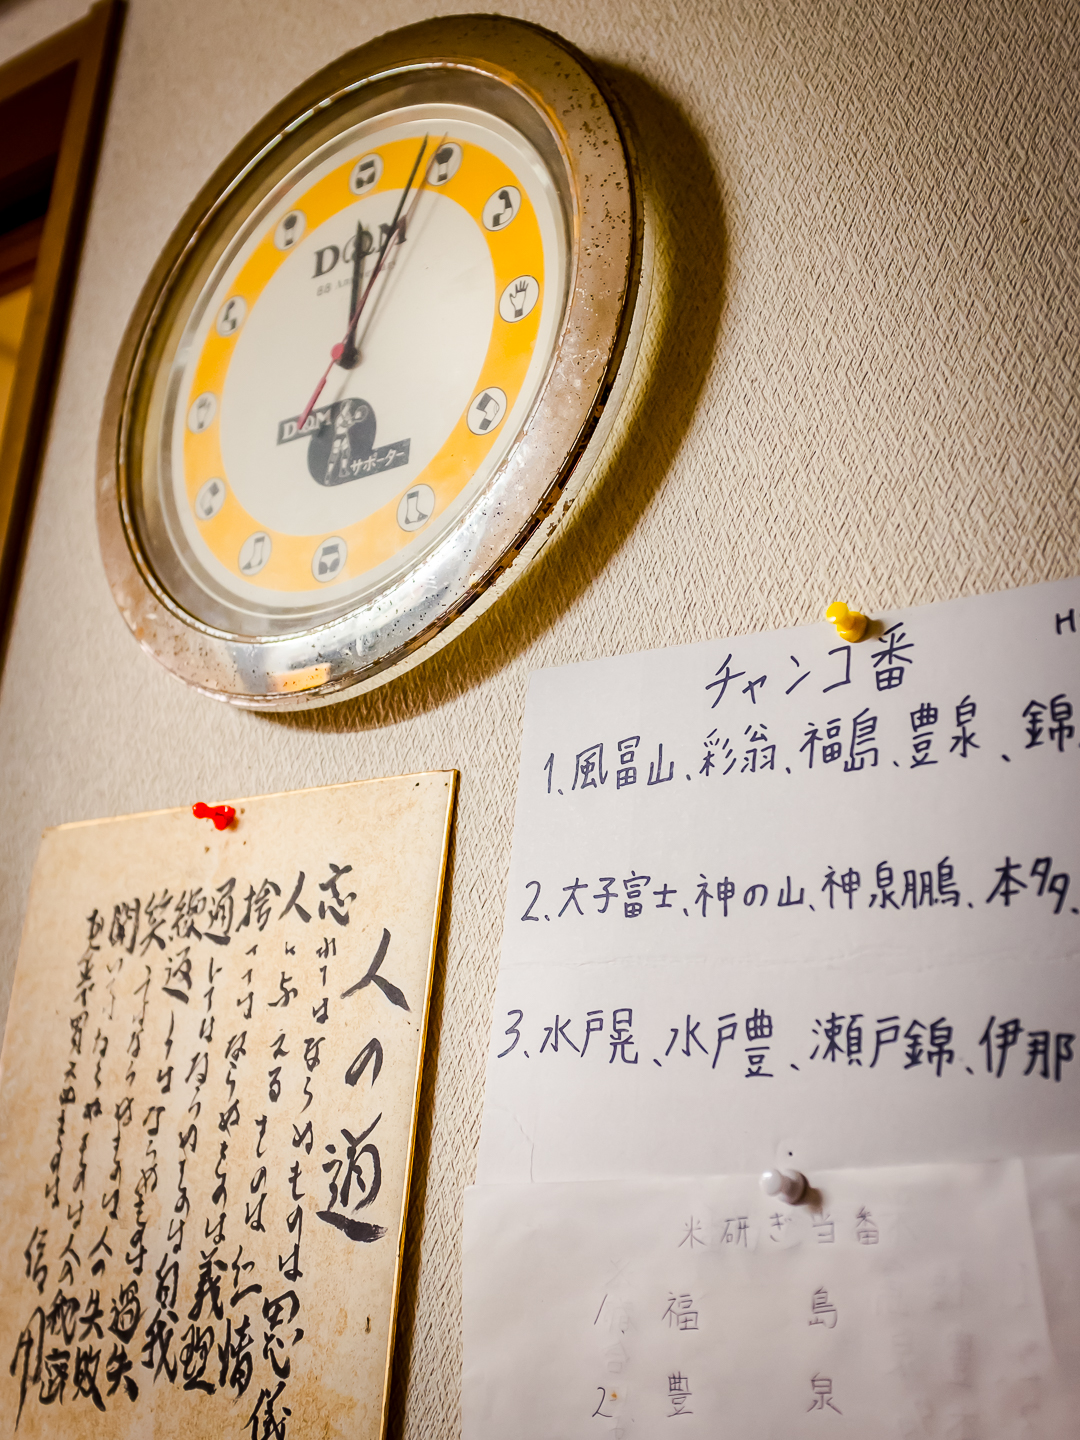 D@M
88
D@M
サポーター
チャンコ番
1、風冨山、彩翁、福島、豊泉、錦
2、大子富士、神の山、神泉鵬、本多、
3、水戸晃、水戸豊、瀬戸錦、伊那
米研ぎ当番
1、福島
2、豊泉
人の道
忘れてはならぬものは恩儀
人に与えるものは仁情
捨ててはならぬものは義理
通してはならぬものは自我
繰返してはならぬものは過失
笑ってはならぬものは人の失敗
聞いてはならぬものは人の秘密